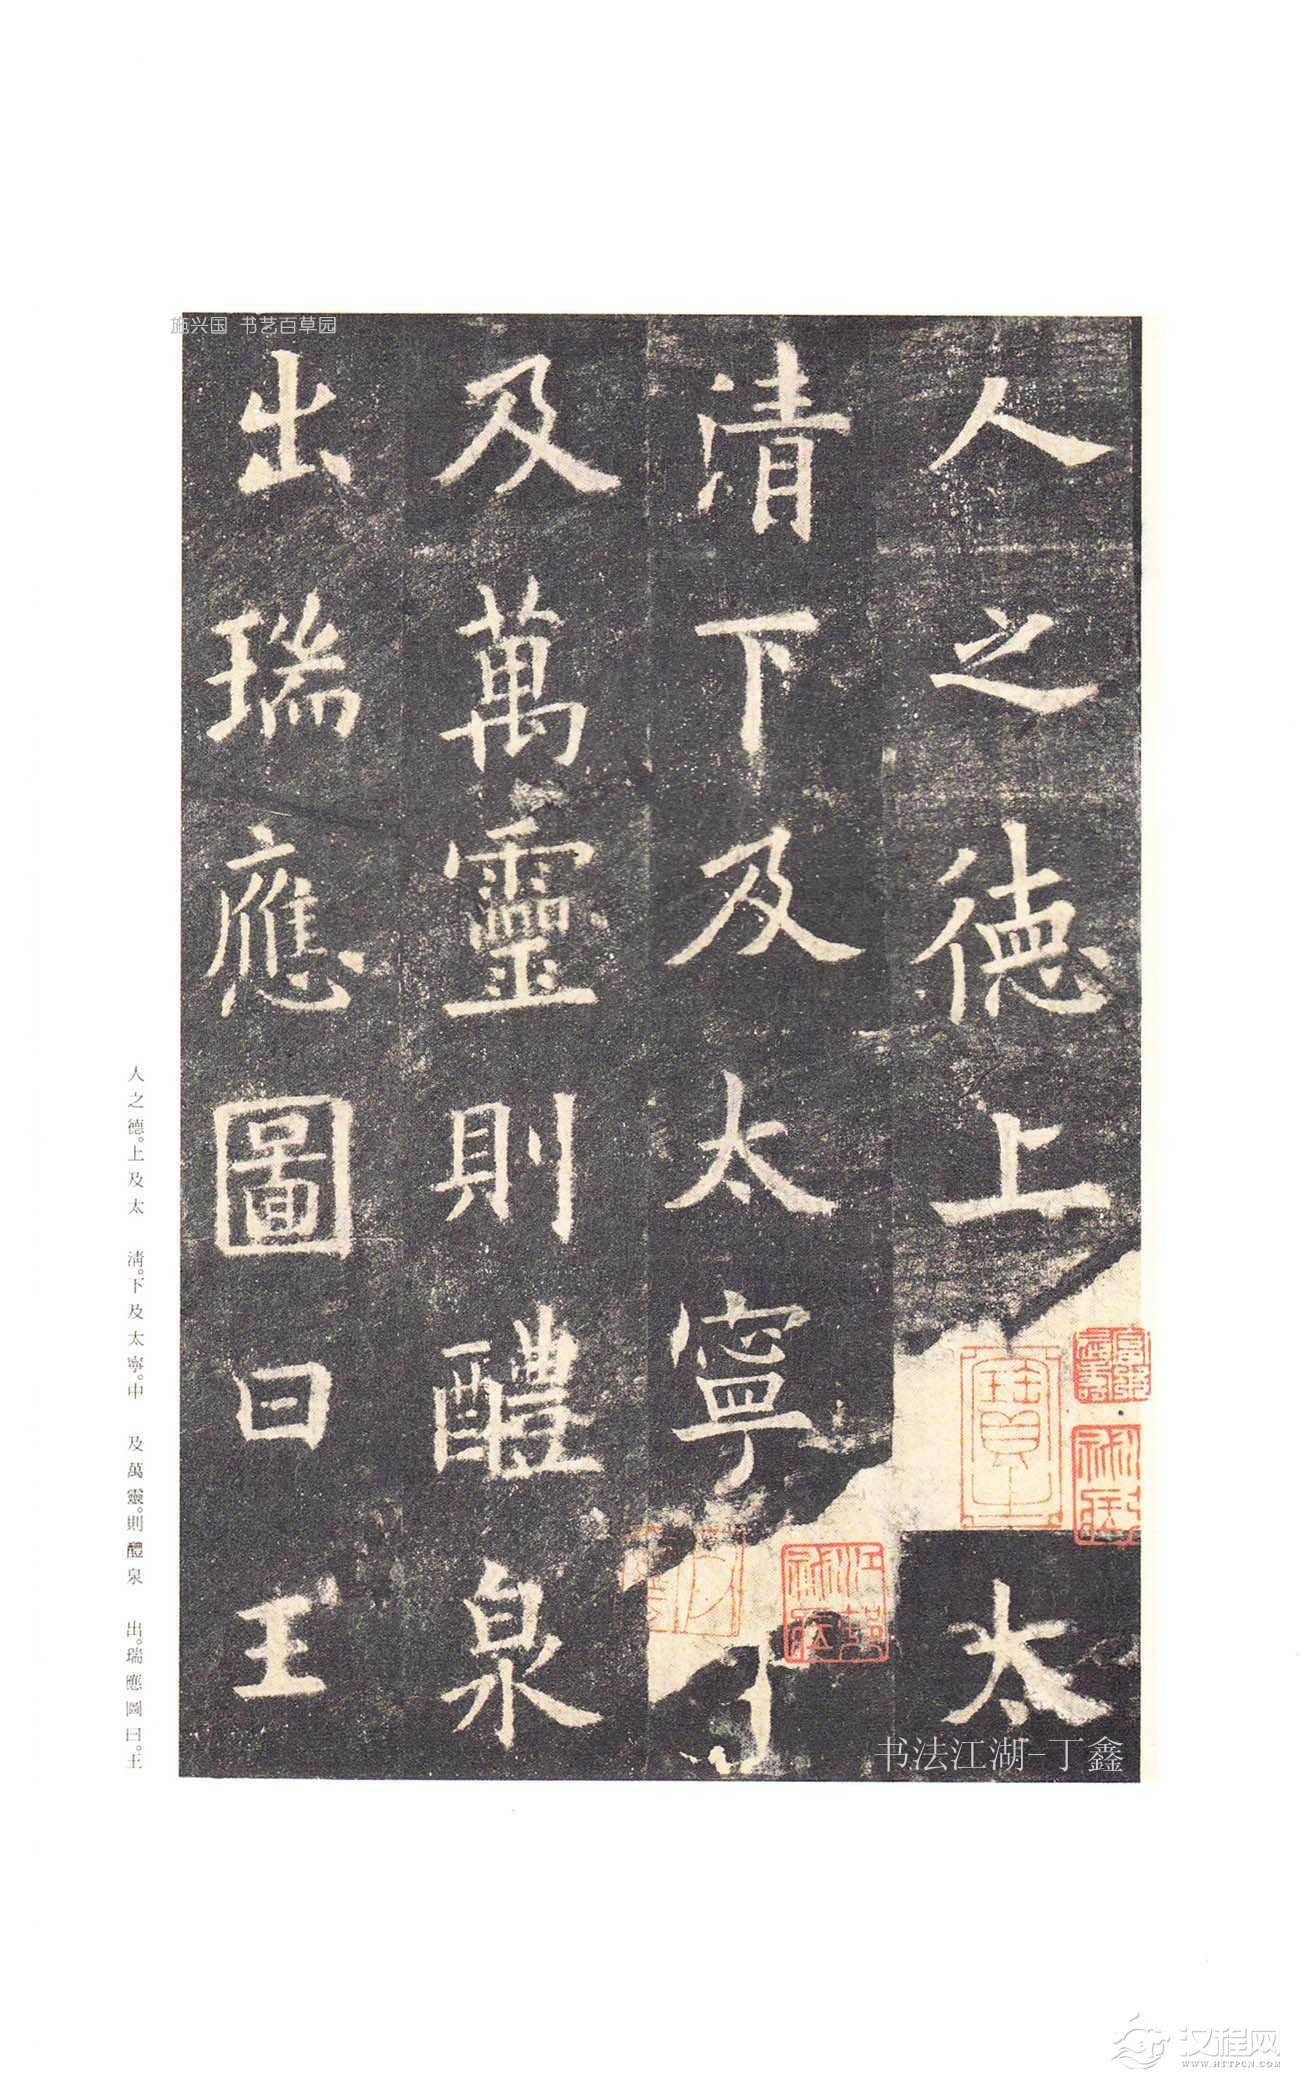 施兴国 书艺百草园
人之德上太
清下及太寧
及萬靈則醴泉
出瑞應圖曰王
人之德。上及太 清。下及太寧。中 及萬靈。則醴泉 出。瑞應圖曰。王
书法江湖-丁鑫
汉程网
WWW.HTTPCN.COM